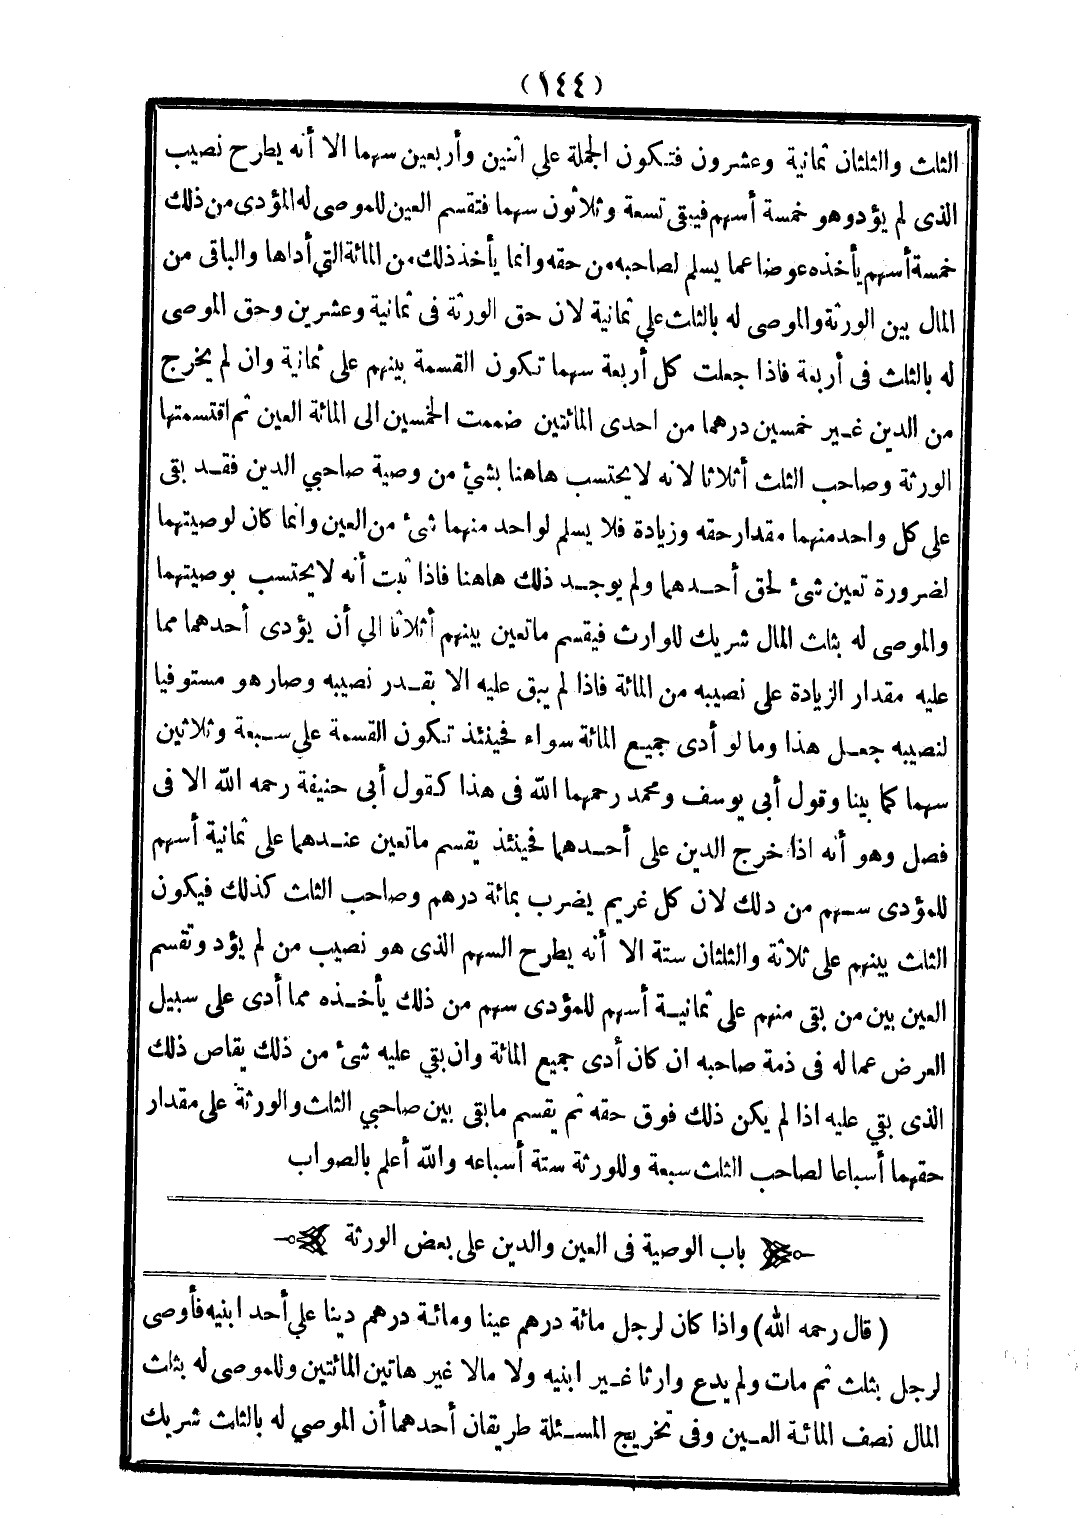 (١٤٤)
الثلث والثلثان ثمانية وعشرون فتكون الجملة على اثنين وأربعين سهما الا أنه يطرح نصيب
الذى لم يؤد وهو خمسة أسهم فيبقى تسعة وثلاثون سهما فتقسم العين للموصى له المؤدى من ذلك
خمسة أسهم يأخذه عوضا عما يسلم لصاحبه من حقه وانما يأخذ ذلك من المائة التي أداها والباقى من
المال بين الورثة والموصى له بالثلث علي ثمانية لان حق الورثة فى ثمانية وعشرين وحق الموصى
له بالثلث فى أربعة فاذا جعلت كل أربعة سهما تكون القسمة بينهم على ثمانية وان لم يخرج
من الدين غير خمسين درهما من احدى المائتين ضممت الخمسين الى المائة العين ثم اقتسمتها
الورثة وصاحب الثلث أثلاثا لانه لا يحتسب هاهنا بشئ من وصية صاحبي الدين فقد بقى
على كل واحد منهما مقدار حقه وزيادة فلا يسلم لواحد منهما شئ من العين وانما كان لوصيتهما
لضرورة تعين شئ لحق أحدهما ولم يوجد ذلك هاهنا فاذا ثبت أنه لا يحتسب بوصيتهما
والموصى له بثلث المال شريك للوارث فيقسم ماتعين بينهم أثلاثا الي أن يؤدى أحدهما مما
عليه مقدار الزيادة على نصيبه من المائة فاذا لم يبق عليه الا بقدر نصيبه وصار هو مستوفيا
لنصيبه جعل هذا وما لو أدى جميع المائة سواء فحينئذ تكون القسمة علي سبعة وثلاثين
سهما كما بينا وقول أبى يوسف ومحمد رحمهما الله فى هذا كقول أبى حنيفة رحمه الله الا فى
فصل وهو أنه اذا خرج الدين على أحدهما فحينئذ يقسم ماتعين عندهما على ثمانية أسهم
للمؤدى سهم من دلك لان كل غريم يضرب بمائة درهم وصاحب الثلث كذلك فيكون
الثلث بينهم على ثلاثة والثلثان ستة الا أنه يطرح السهم الذى هو نصيب من لم يؤد وتقسم
العين بين من بقى منهم على ثمانية أسهم للمؤدى سهم من ذلك يأخذه مما أدى على سبيل
العرض عما له فى ذمة صاحبه ان كان أدى جميع المائة وان بقي عليه شئ من ذلك يقاص ذلك
الذى بقي عليه اذا لم يكن ذلك فوق حقه ثم يقسم مابقى بين صاحبي الثلث والورثة على مقدار
حقهما أسباعا لصاحب الثلث سبعة وللورثة ستة أسباعه والله أعلم بالصواب
باب الوصية فى العين والدين على بعض الورثة
(قال رحمه الله) واذا كان لرجل مائة درهم عينا ومائة درهم دينا علي أحد ابنيه فأوصى
لرجل بثلث ثم مات ولم يدع وارثا غير ابنيه ولا مالا غير هاتين المائتين وللموصى له بثلث
المال نصف المائة العين وفى تخريج المسئلة طريقان أحدهما أن الموصي له بالثلث شريك